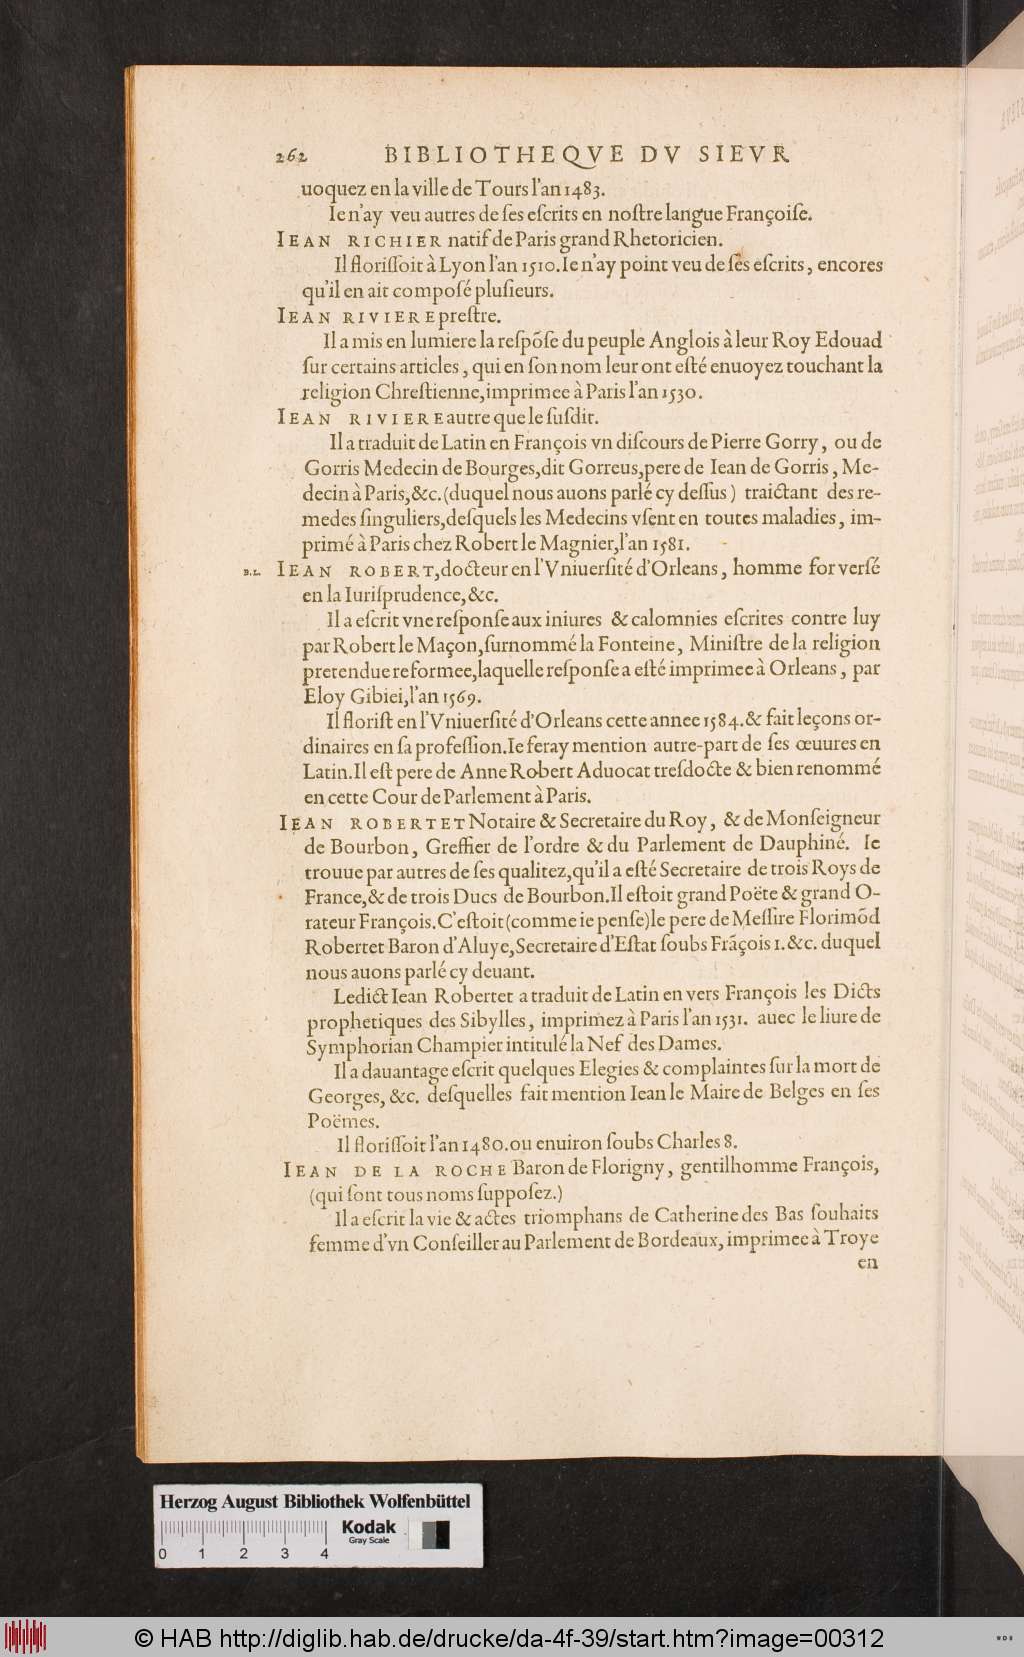 262 BIBLIOTHEQVE DV SIEVR
uoquez en la ville de Tours l'an 1483.
Ie n'ay veu autres de ſes eſcrits en noſtre langue Françoiſe.
IEAN RICHIER natif de Paris grand Rhetoricien.
Il floriſſoit à Lyon l'an 1510. Ie n'ay point veu de ſes eſcrits, encores
qu'il en ait compoſé pluſieurs.
IEAN RIVIERE preſtre.
Il a mis en lumiere la reſpõſe du peuple Anglois à leur Roy Edouad
ſur certains articles, qui en ſon nom leur ont eſté enuoyez touchant la
religion Chreſtienne, imprimee à Paris l'an 1530.
IEAN RIVIERE autre que le ſuſdit.
Il a traduit de Latin en François vn diſcours de Pierre Gorry, ou de
Gorris Medecin de Bourges, dit Gorreus, pere de Iean de Gorris, Me-
decin à Paris, &c. (duquel nous auons parlé cy deſſus) traictant des re-
medes ſinguliers, deſquels les Medecins vſent en toutes maladies, im-
primé à Paris chez Robert le Magnier, l'an 1581.
B.L. IEAN ROBERT, docteur en l'Vniuerſité d'Orleans, homme for verſé
en la Iuriſprudence, &c.
Il a eſcrit vne reſponſe aux iniures & calomnies eſcrites contre luy
par Robert le Maçon, ſurnommé la Fonteine, Miniſtre de la religion
pretendue reformee, laquelle reſponſe a eſté imprimee à Orleans, par
Eloy Gibiei, l'an 1569.
Il floriſt en l'Vniuerſité d'Orleans cette annee 1584. & fait leçons or-
dinaires en ſa profeſſion. Ie feray mention autre-part de ſes œuures en
Latin. Il eſt pere de Anne Robert Aduocat treſdocte & bien renommé
en cette Cour de Parlement à Paris.
IEAN ROBERTET Notaire & Secretaire du Roy, & de Monſeigneur
de Bourbon, Greffier de l'ordre & du Parlement de Dauphiné. Ie
trouue par autres de ſes qualitez, qu'il a eſté Secretaire de trois Roys de
France, & de trois Ducs de Bourbon. Il eſtoit grand Poëte & grand O-
rateur François. C'eſtoit (comme ie penſe) le pere de Meſſire Florimõd
Robertet Baron d'Aluye, Secretaire d'Eſtat ſoubs Frãçois 1. &c. duquel
nous auons parlé cy deuant.
Ledict Iean Robertet a traduit de Latin en vers François les Dicts
prophetiques des Sibylles, imprimez à Paris l'an 1531. auec le liure de
Symphorian Champier intitulé la Nef des Dames.
Il a dauantage eſcrit quelques Elegies & complaintes ſur la mort de
Georges, &c. deſquelles fait mention Iean le Maire de Belges en ſes
Poëmes.
Il floriſſoit l'an 1480. ou enuiron ſoubs Charles 8.
IEAN DE LA ROCHE Baron de Florigny, gentilhomme François,
(qui ſont tous noms ſuppoſez.)
Il a eſcrit la vie & actes triomphans de Catherine des Bas ſouhaits
femme d'vn Conſeiller au Parlement de Bordeaux, imprimee à Troye
en
Herzog August Bibliothek Wolfenbüttel
0 1 2 3 4
Kodak
Gray Scale
© HAB http://diglib.hab.de/drucke/da-4f-39/start.htm?image=00312